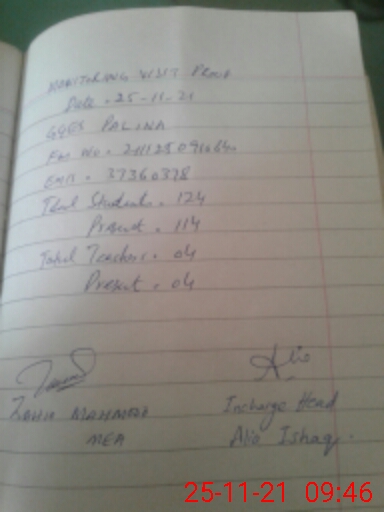 MONITORING VISIT PROOF
Date . 25-11-21
GGES PALINA
EMIS . 37360378
Total Students . 124
Present . 114
Total Teachers . 04
Present . 04
MAHMOOD
Incharge Head
MEA
Alia Ishaq.
25-11-21 09:46